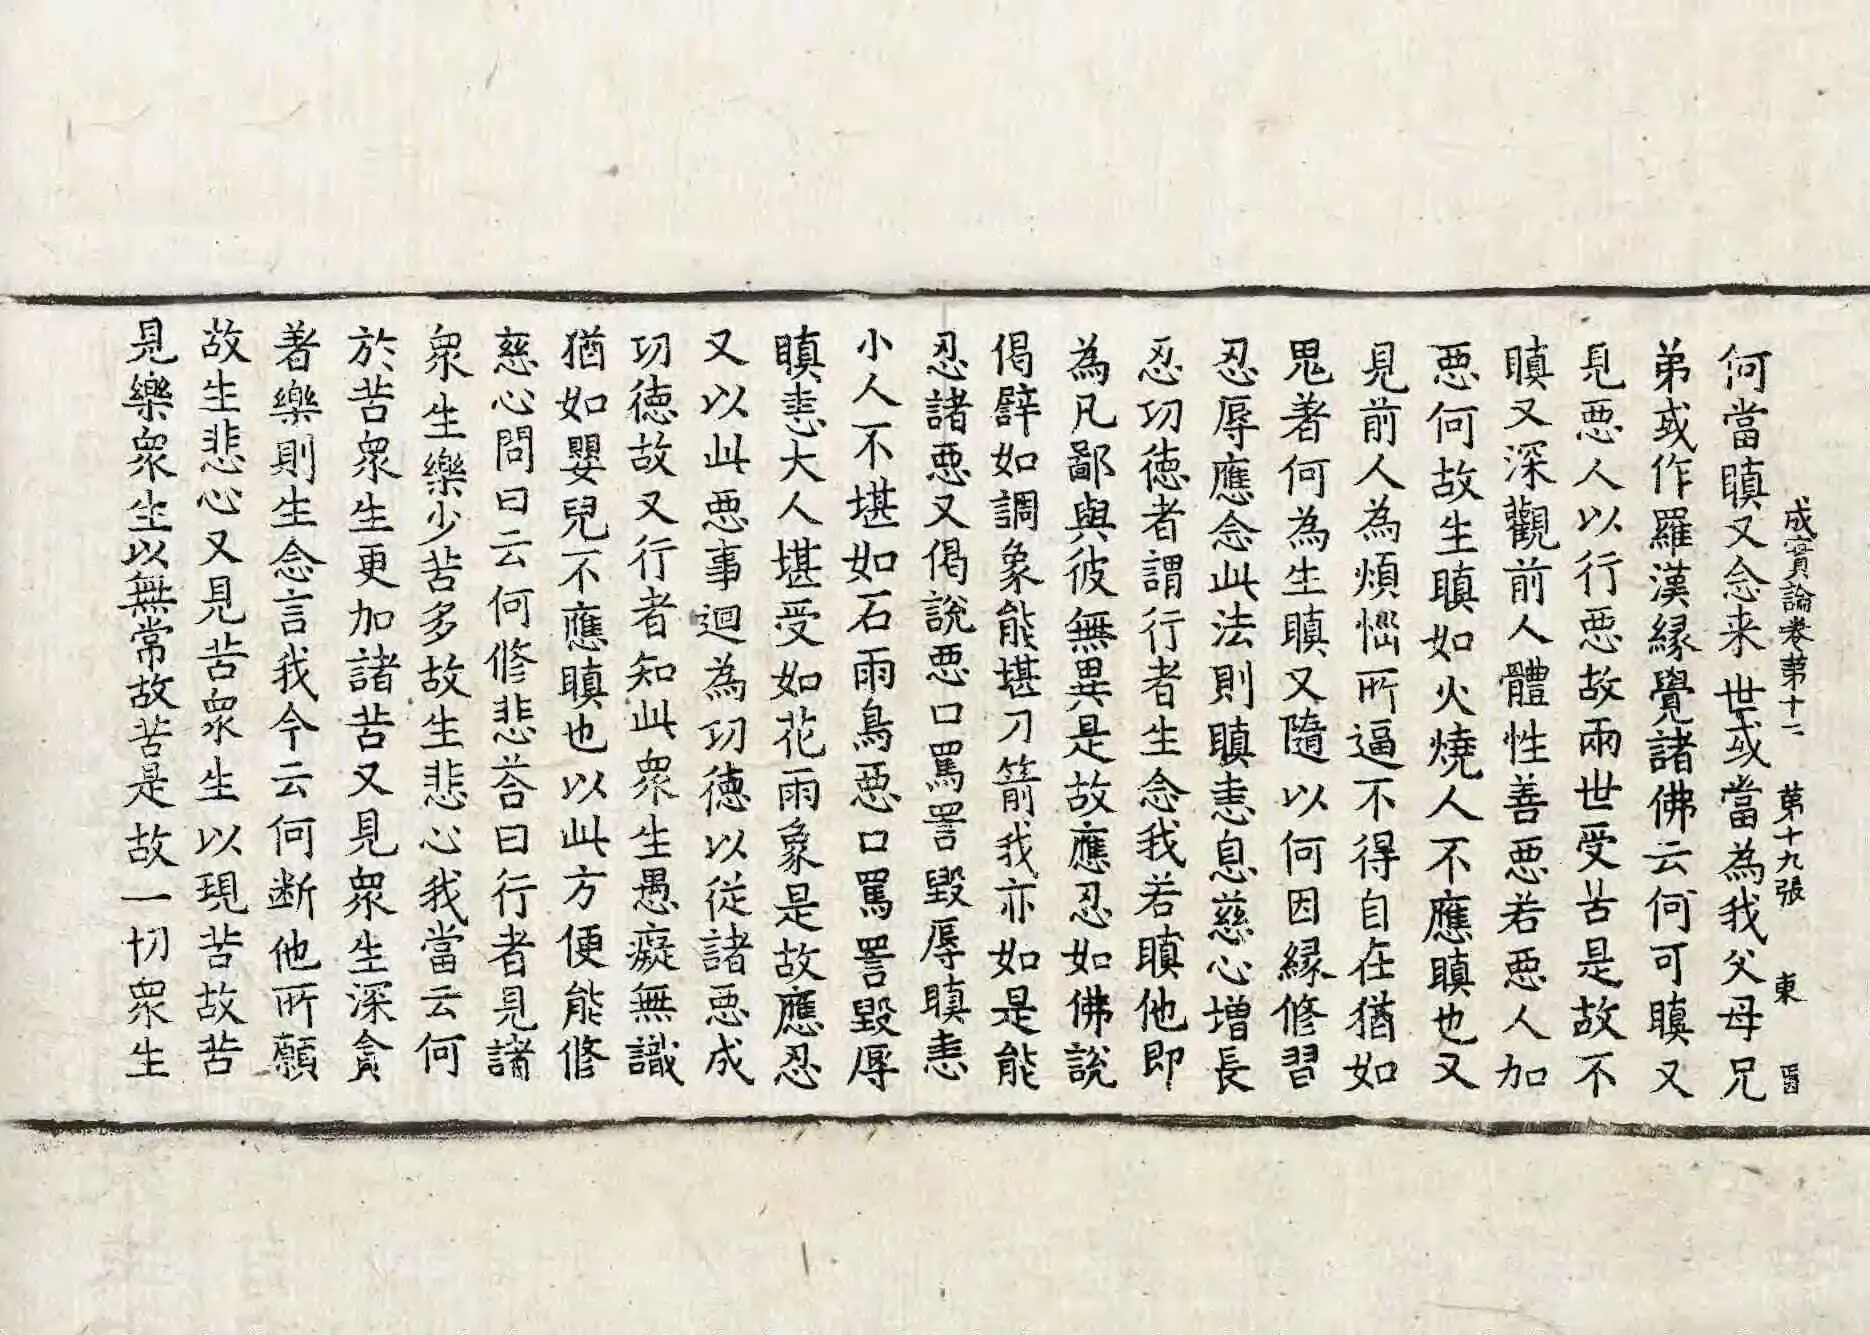 成實論卷第十二 第十九張 東
何當瞋又念来世或當為我父母兄
弟或作羅漢縁覺諸佛云何可瞋又
見惡人以行惡故兩世受苦是故不
瞋又深觀前人體性善惡若惡人加
惡何故生瞋如火燒人不應瞋也又
見前人為煩惱所逼不得自在猶如
鬼著何為生瞋又隨以何因縁修習
忍辱應念此法則瞋恚息慈心增長
忍功徳者謂行者生念我若瞋他即
為凡鄙與彼無異是故應忍如佛說
偈辟如調象能堪刀箭我亦如是能
忍諸惡又偈說惡口罵詈毀辱瞋恚
小人不堪如石雨鳥惡口罵詈毀辱
瞋恚大人堪受如花雨象是故應忍
又以此惡事迴為功徳以從諸惡成
功徳故又行者知此衆生愚癡無識
猶如嬰兒不應瞋也以此方便能修
慈心問曰云何修悲荅曰行者見諸
衆生樂少苦多故生悲心我當云何
於苦衆生更加諸苦又見衆生深貪
著樂則生念言我今云何断他所願
故生悲心又見苦衆生以現苦故苦
見樂衆生以無常故苦是故一切衆生